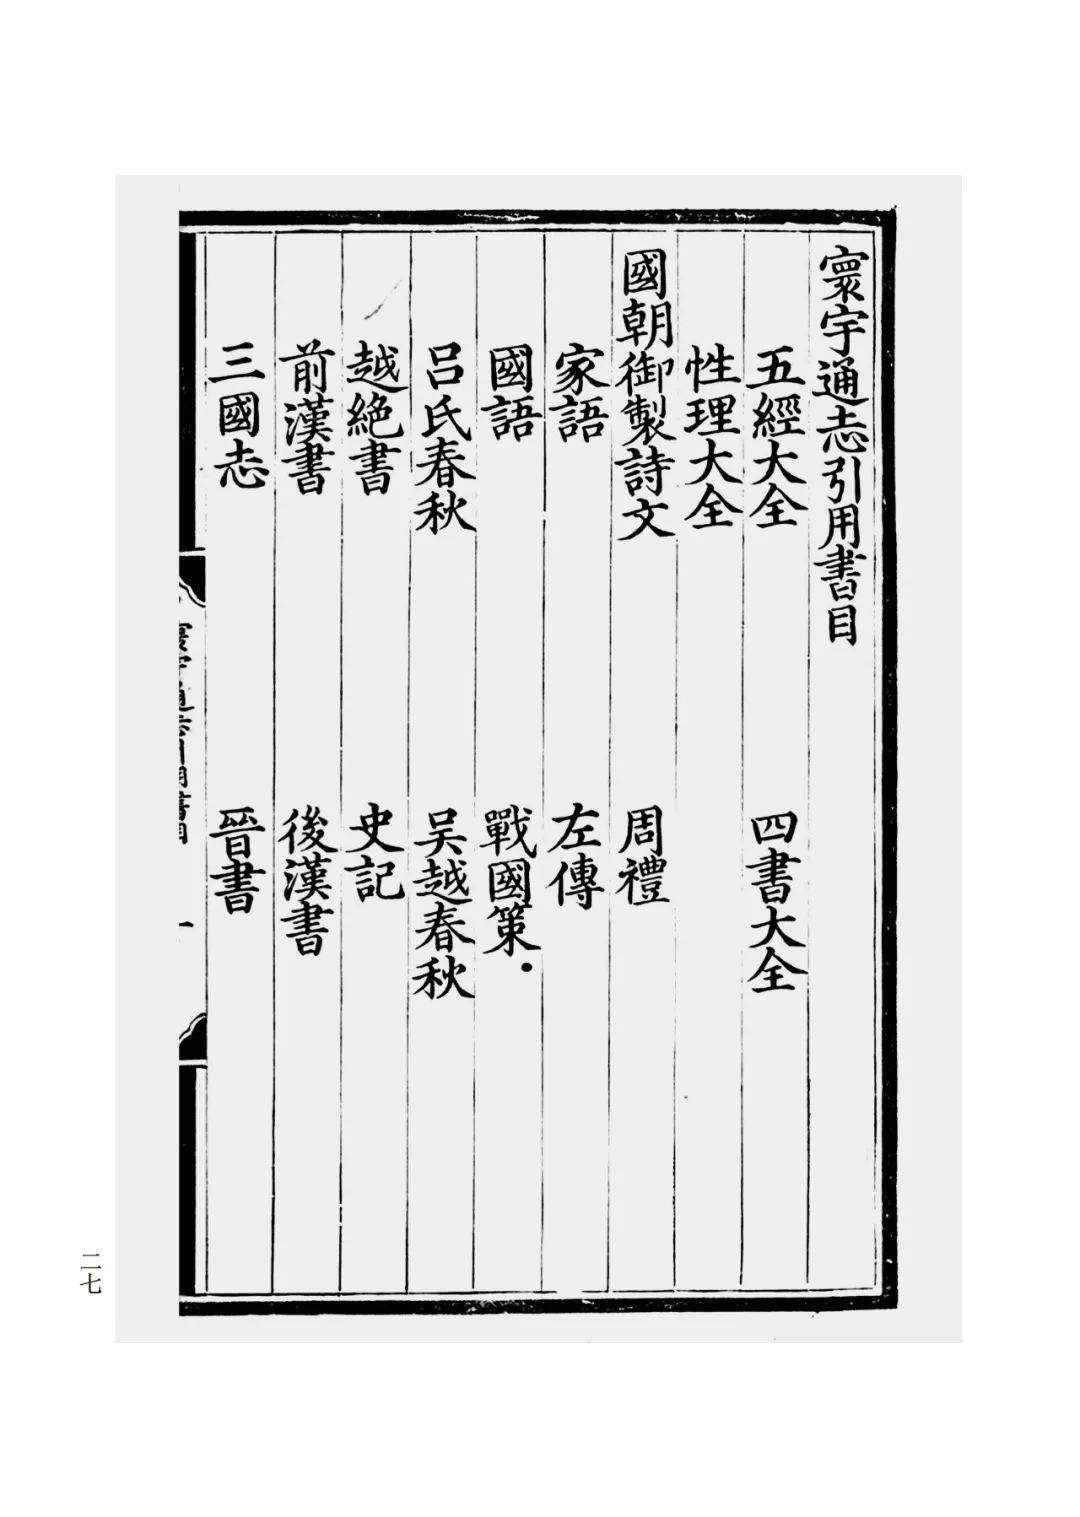 寰宇通志引用書目
五經大全　四書大全
性理大全
國朝御製詩文　周禮
家語　左傳
國語　戰國策
呂氏春秋　吳越春秋
越絕書　史記
前漢書　後漢書
三國志　晉書
一
二七